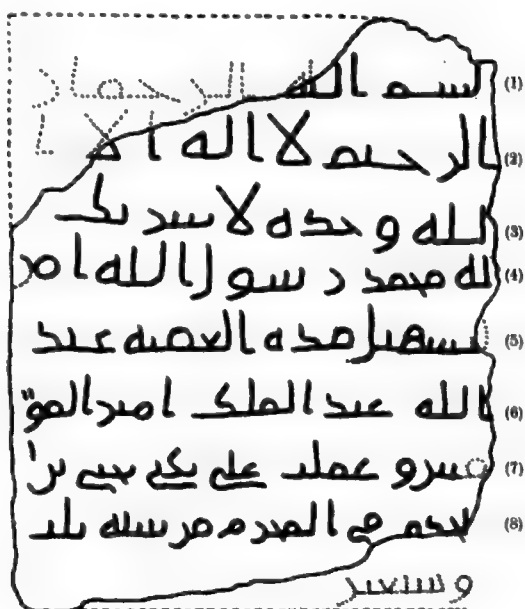 بسم الله الرحمن (1)
الرحيم لا اله الا (2)
الله وحده لا شريك (3)
له محمد رسول الله امر (4)
بتسهيل هذه العقبه عبد (5)
الله عبد الملك امير المؤ (6)
منين وعملت على يدي يحيى بن ا (7)
لحكم في المحرم من سنه ثلث (8)
وسبعين